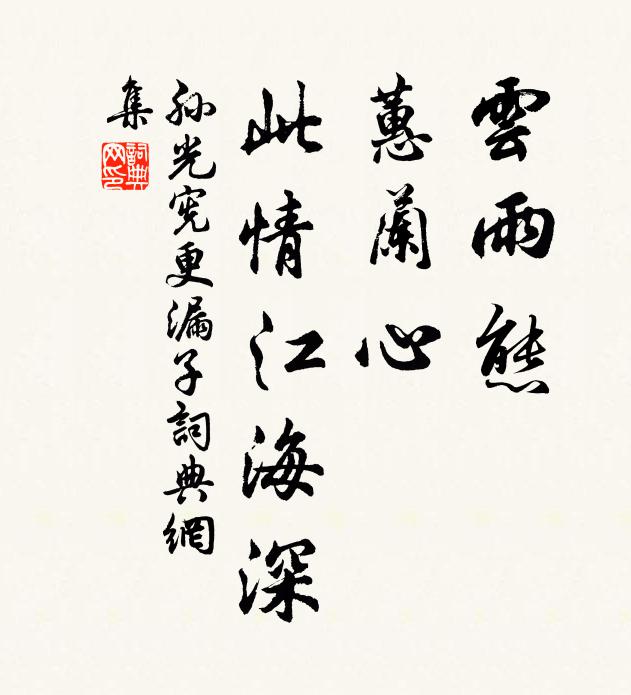 雲雨態
蕙蘭心
此情江海深
孫光憲更漏子詞典網
集
詞典
网印